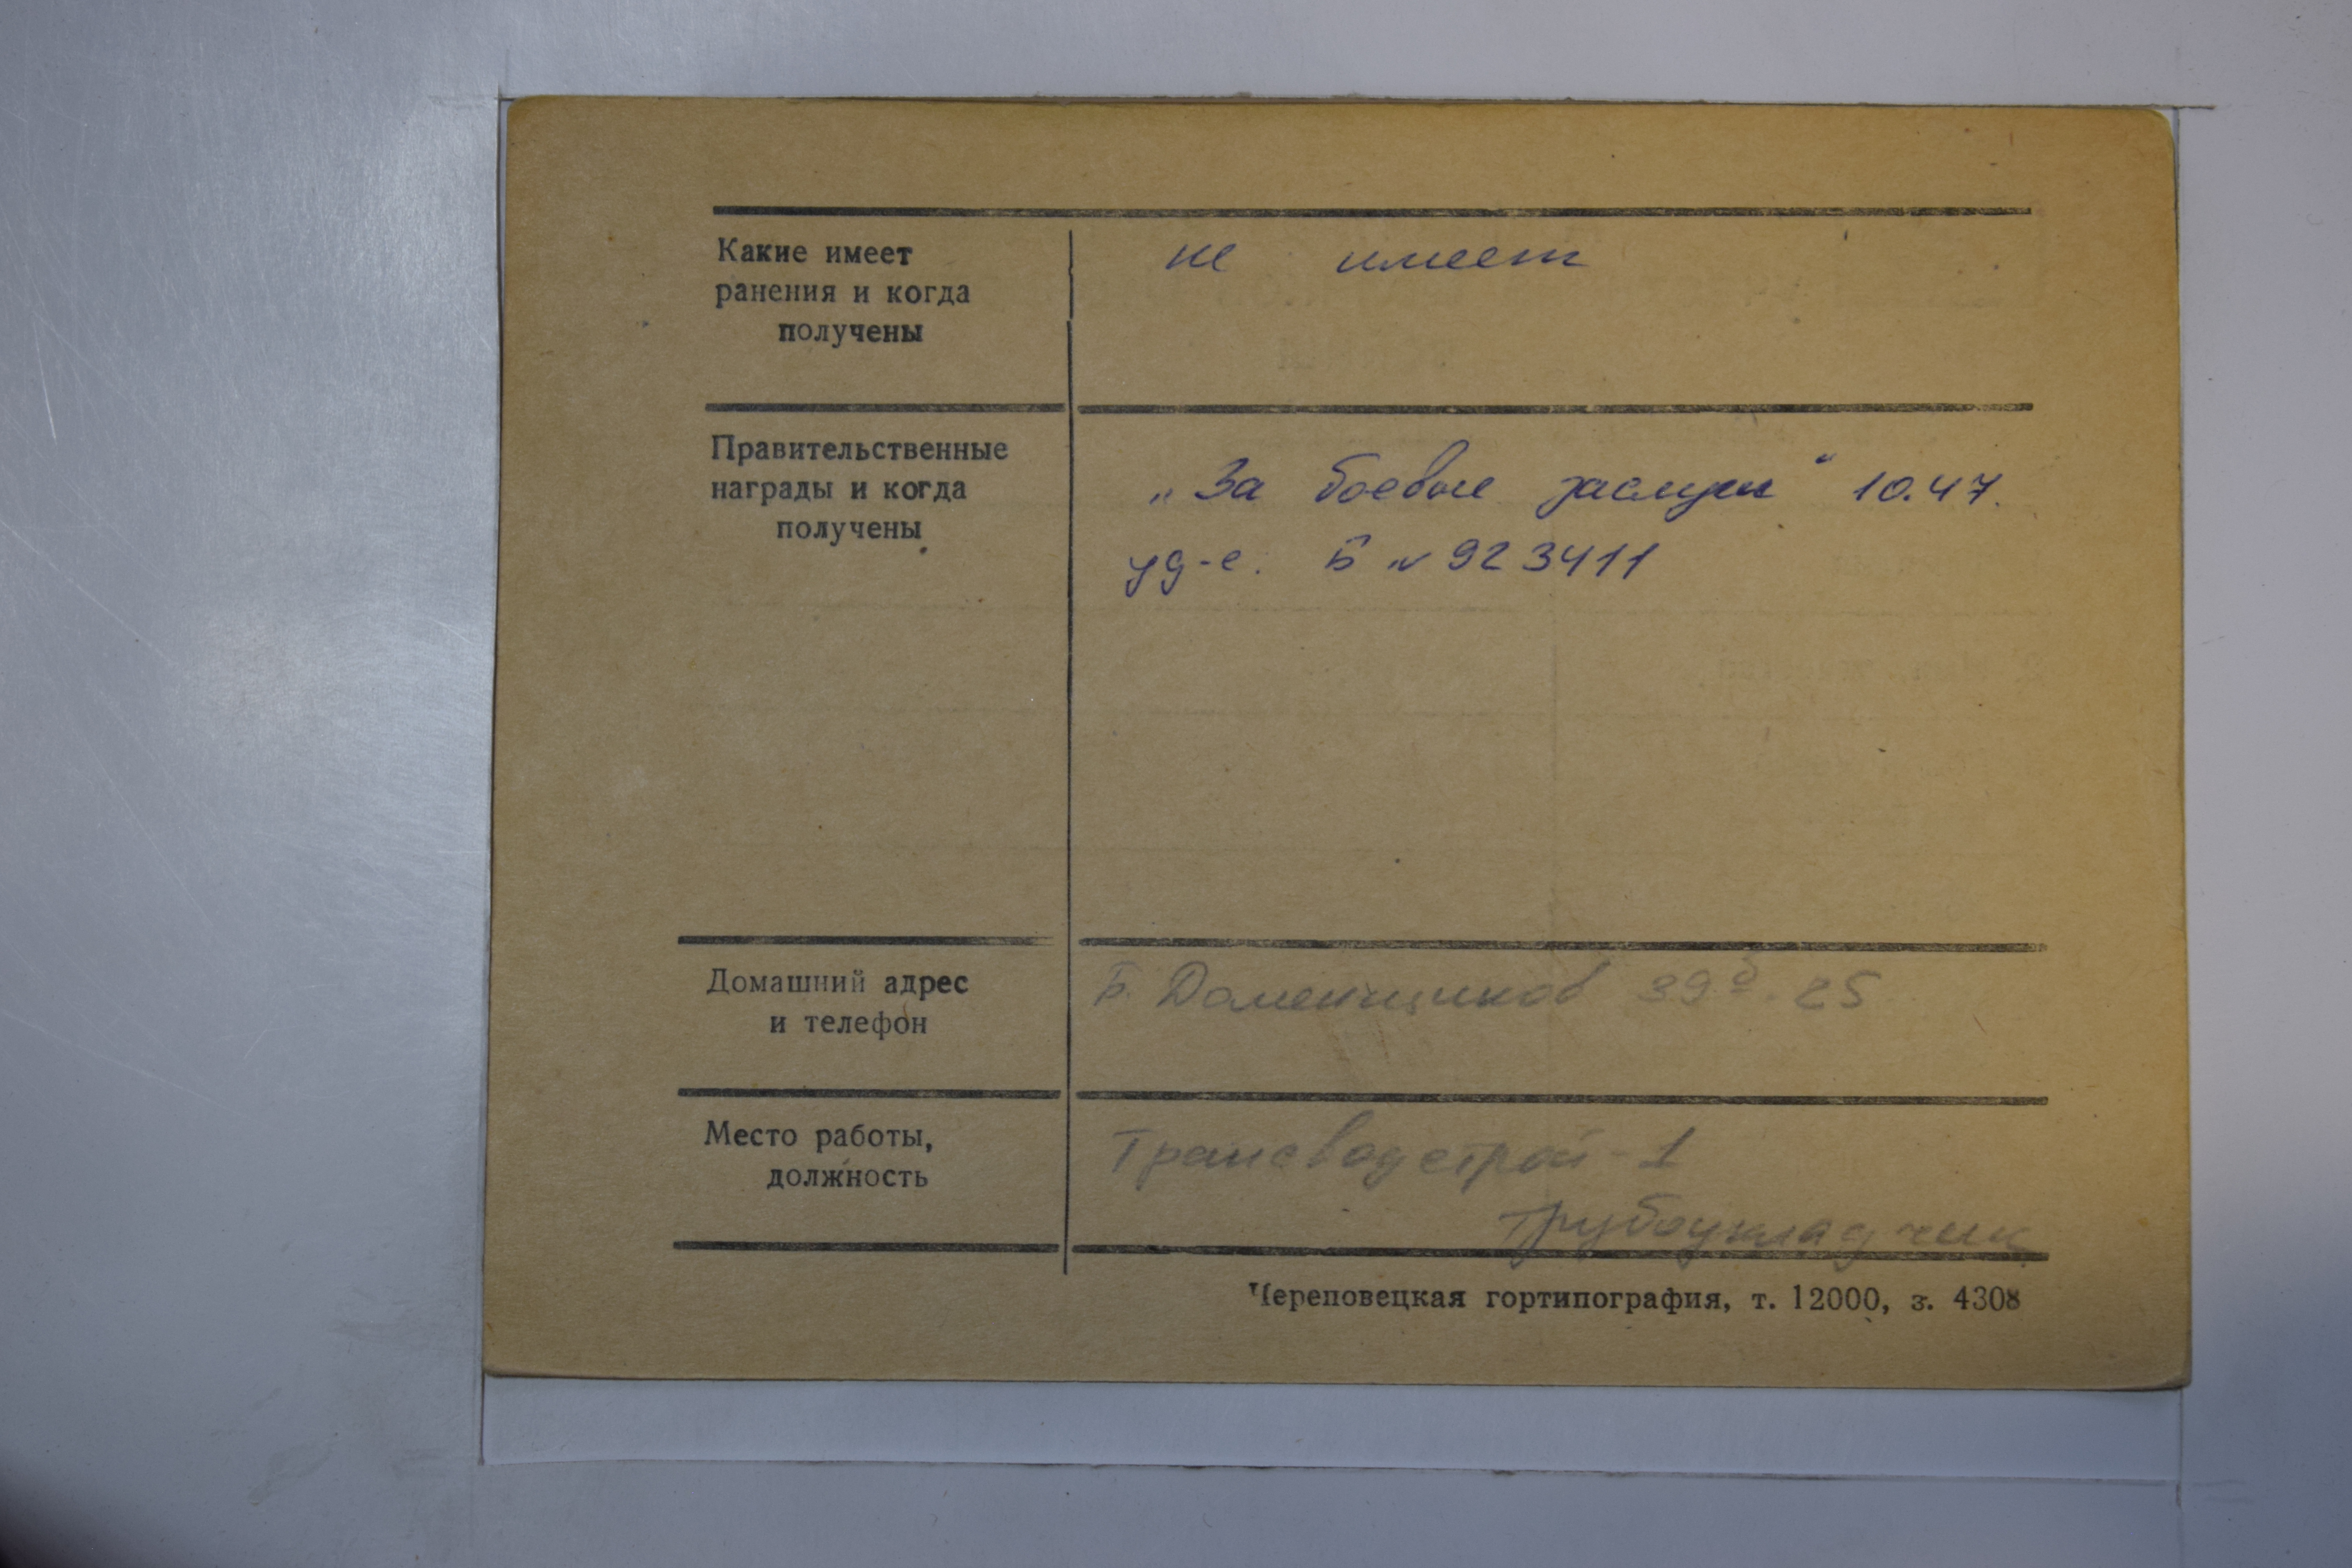 Какие имеет
ранения и когда
получены
не имеет
Правительственные
награды и когда
получены
„За боевые заслуги“ 10.47.
уд-е. Б № 923411
Домашний адрес
и телефон
Б. Доменщиков 39б. 25
Место работы,
должность
Трансводстрой-1
Трубоукладчик
Череповецкая гортипография, т. 12000, з. 4308